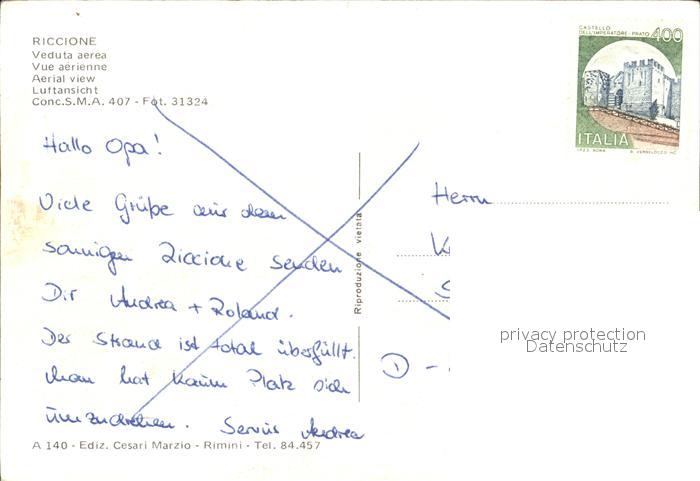 RICCIONE
Veduta aerea
Vue aérienne
Aerial view
Luftansicht
Conc.S.M.A. 407 - Fot. 31324
CASTELLO
DELL'IMPERATORE - PRATO 400
ITALIA
I.P.Z.S. ROMA
Hallo Opa!
Viele Grüße aus dem
sonnigen Riccione senden
Dir Andrea + Roland.
Der Strand ist total überfüllt.
Man hat kaum Platz sich
umzudrehen. Servus Andrea
Riproduzione vietata
Herrn
K
S
D -
privacy protection
Datenschutz
A 140 - Ediz. Cesari Marzio - Rimini - Tel. 84.457